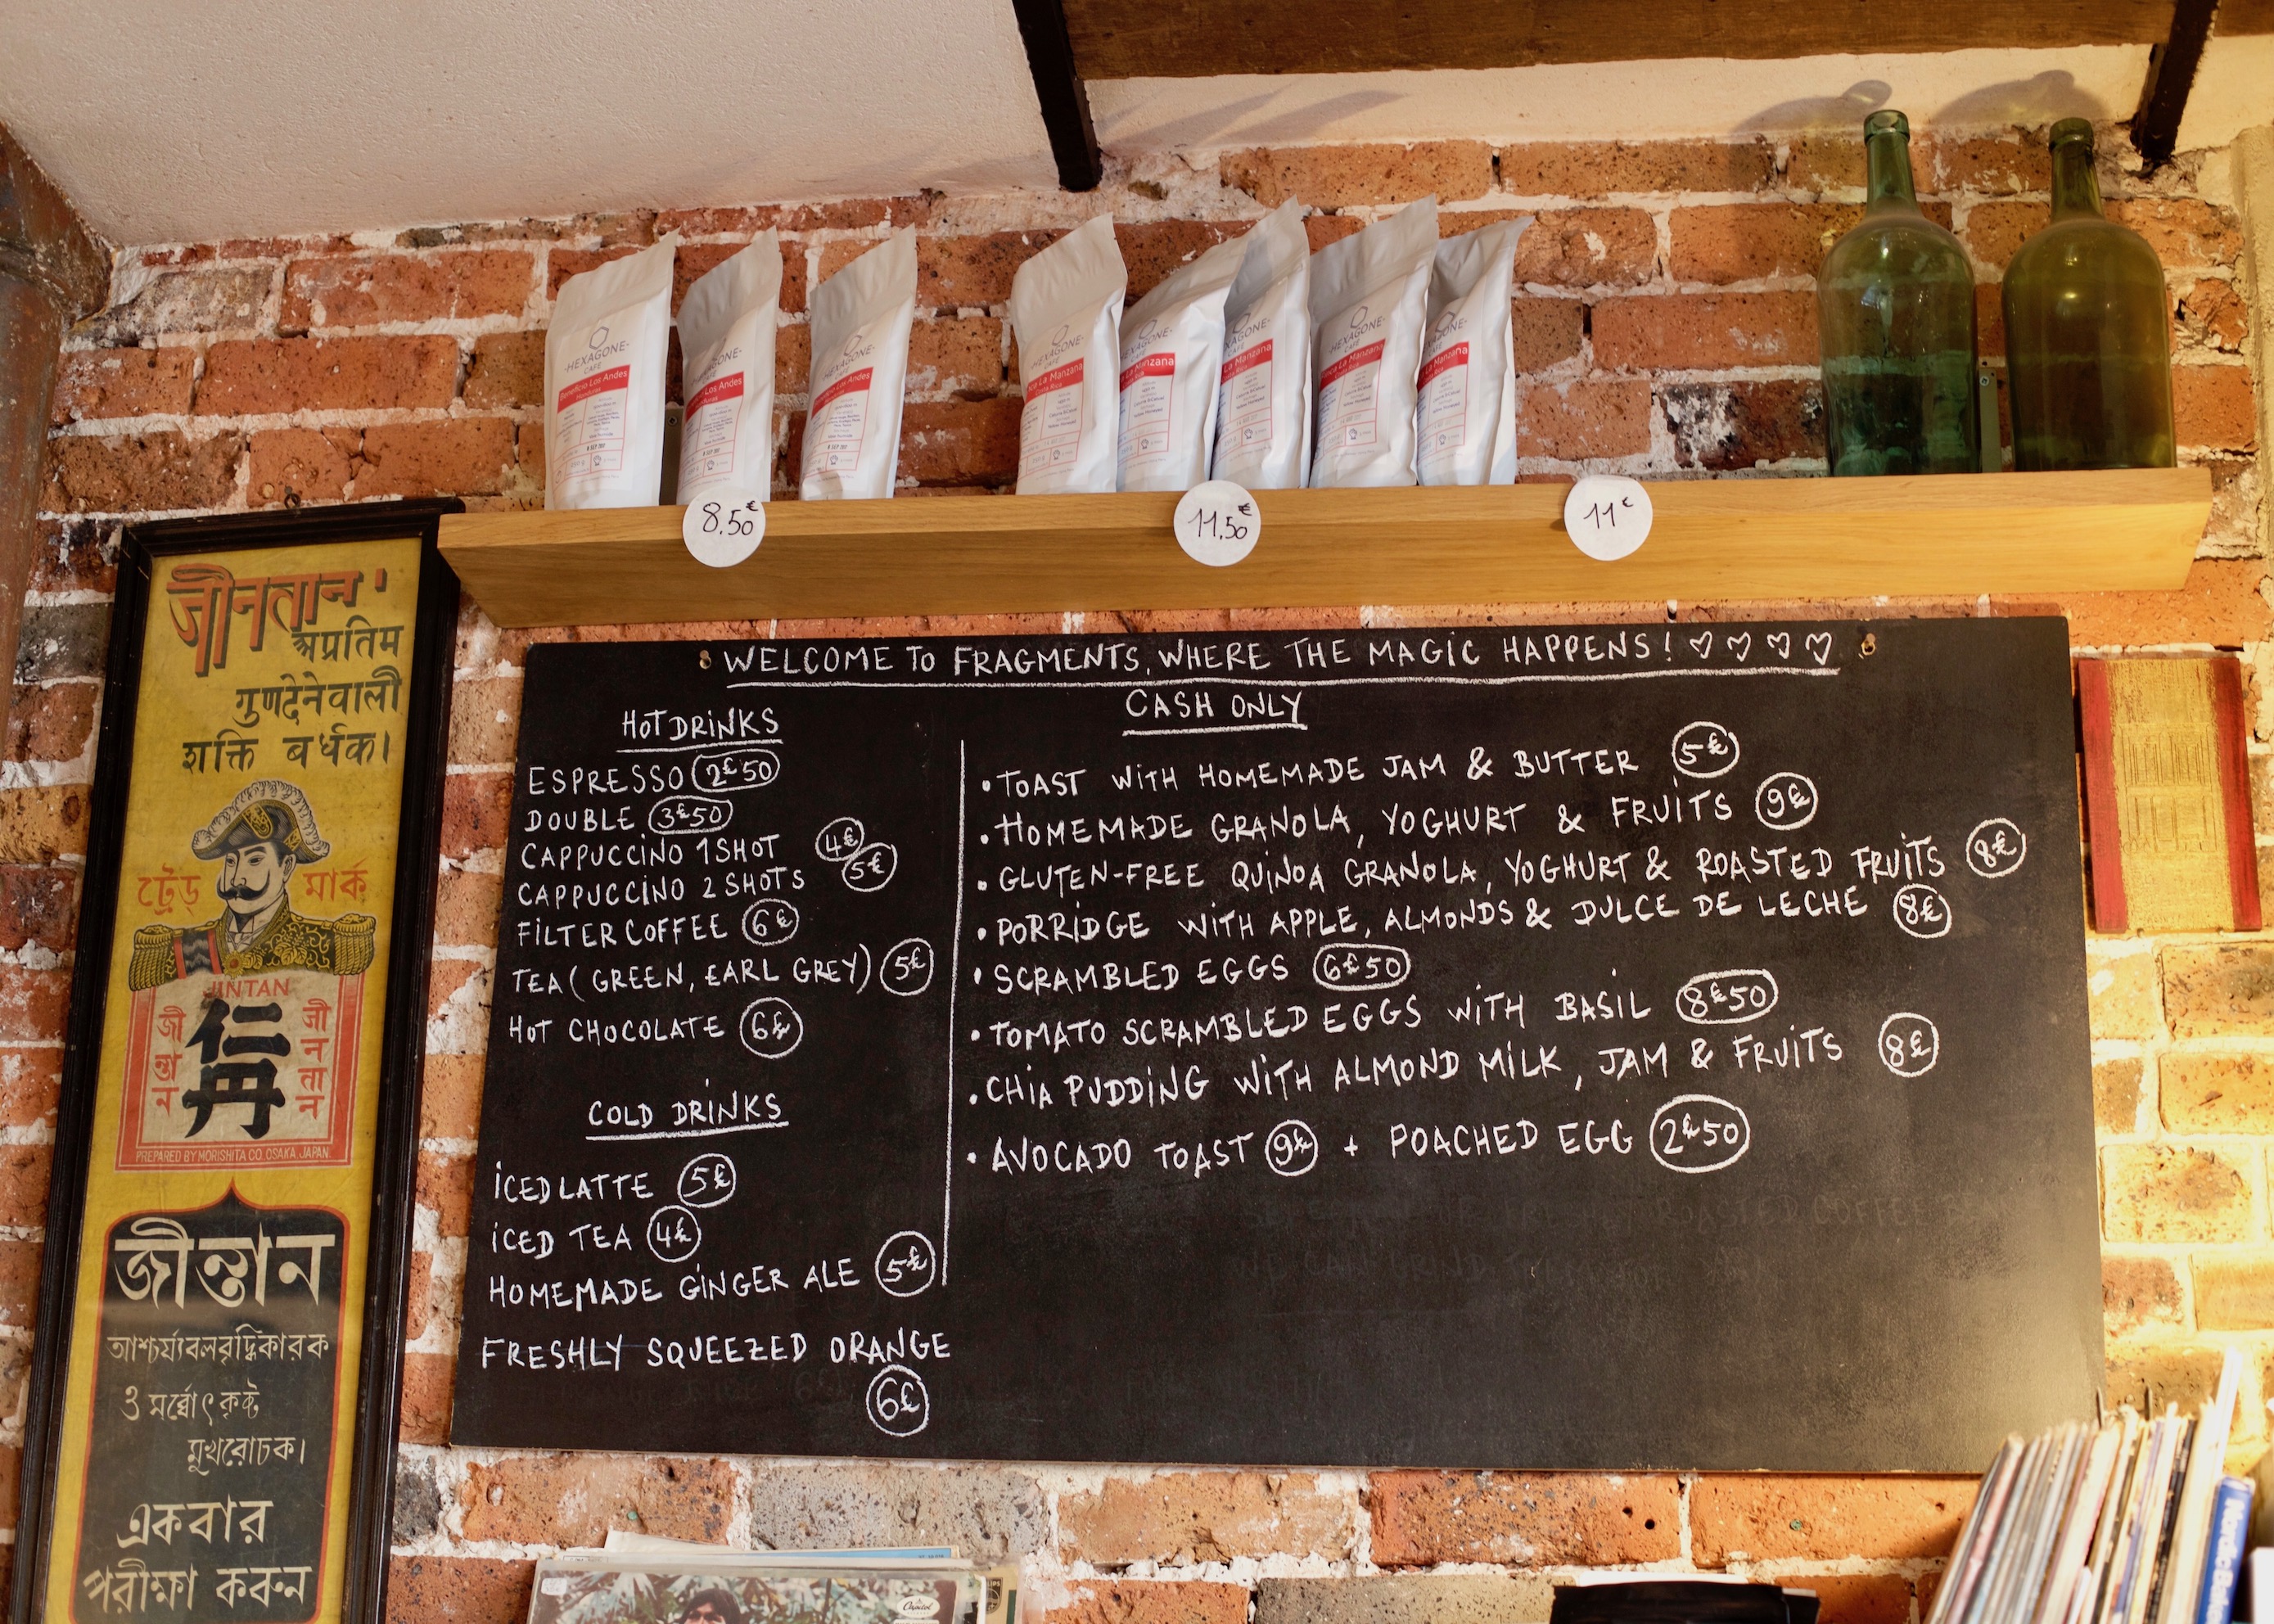 HEXAGONE
CAFÉ
Beneficio Los Andes
Honduras
HEXAGONE
CAFÉ
Los Andes
HEXAGONE
CAFÉ
Los Andes
HEXAGONE
CAFÉ
La Manzana
HEXAGONE
CAFÉ
Manzana
HEXAGONE
CAFÉ
La Manzana
HEXAGONE
CAFÉ
La Manzana
HEXAGONE
CAFÉ
La Manzana
8.50€
11.50€
11€
जीनतान'
अप्रतिम
गुणदेनेवाली
शक्ति बर्धक।
ট্রেড্ মার্ক
JINTAN
জীন্তান
仁丹
जीनतान
PREPARED BY MORISHITA CO. OSAKA, JAPAN.
জীন্তান
আশ্চর্য্যবলবৃদ্ধিকারক
ও সর্ব্বোৎকৃষ্ট
মুখরোচক।
একবার
পরীক্ষা করুন
WELCOME TO FRAGMENTS, WHERE THE MAGIC HAPPENS! ♡ ♡ ♡ ♡
CASH ONLY
HOT DRINKS
ESPRESSO 2€50
DOUBLE 3€50
CAPPUCCINO 1 SHOT 4€
CAPPUCCINO 2 SHOTS 5€
FILTER COFFEE 6€
TEA (GREEN, EARL GREY) 5€
HOT CHOCOLATE 6€
COLD DRINKS
ICED LATTE 5€
ICED TEA 4€
HOMEMADE GINGER ALE 5€
FRESHLY SQUEEZED ORANGE
6€
• TOAST WITH HOMEMADE JAM & BUTTER 5€
• HOMEMADE GRANOLA, YOGHURT & FRUITS 9€
• GLUTEN-FREE QUINOA GRANOLA, YOGHURT & ROASTED FRUITS 8€
• PORRIDGE WITH APPLE, ALMONDS & DULCE DE LECHE 8€
• SCRAMBLED EGGS 6€50
• TOMATO SCRAMBLED EGGS WITH BASIL 8€50
• CHIA PUDDING WITH ALMOND MILK, JAM & FRUITS 8€
• AVOCADO TOAST 9€ + POACHED EGG 2€50
ROASTED COFFEE
Capitol